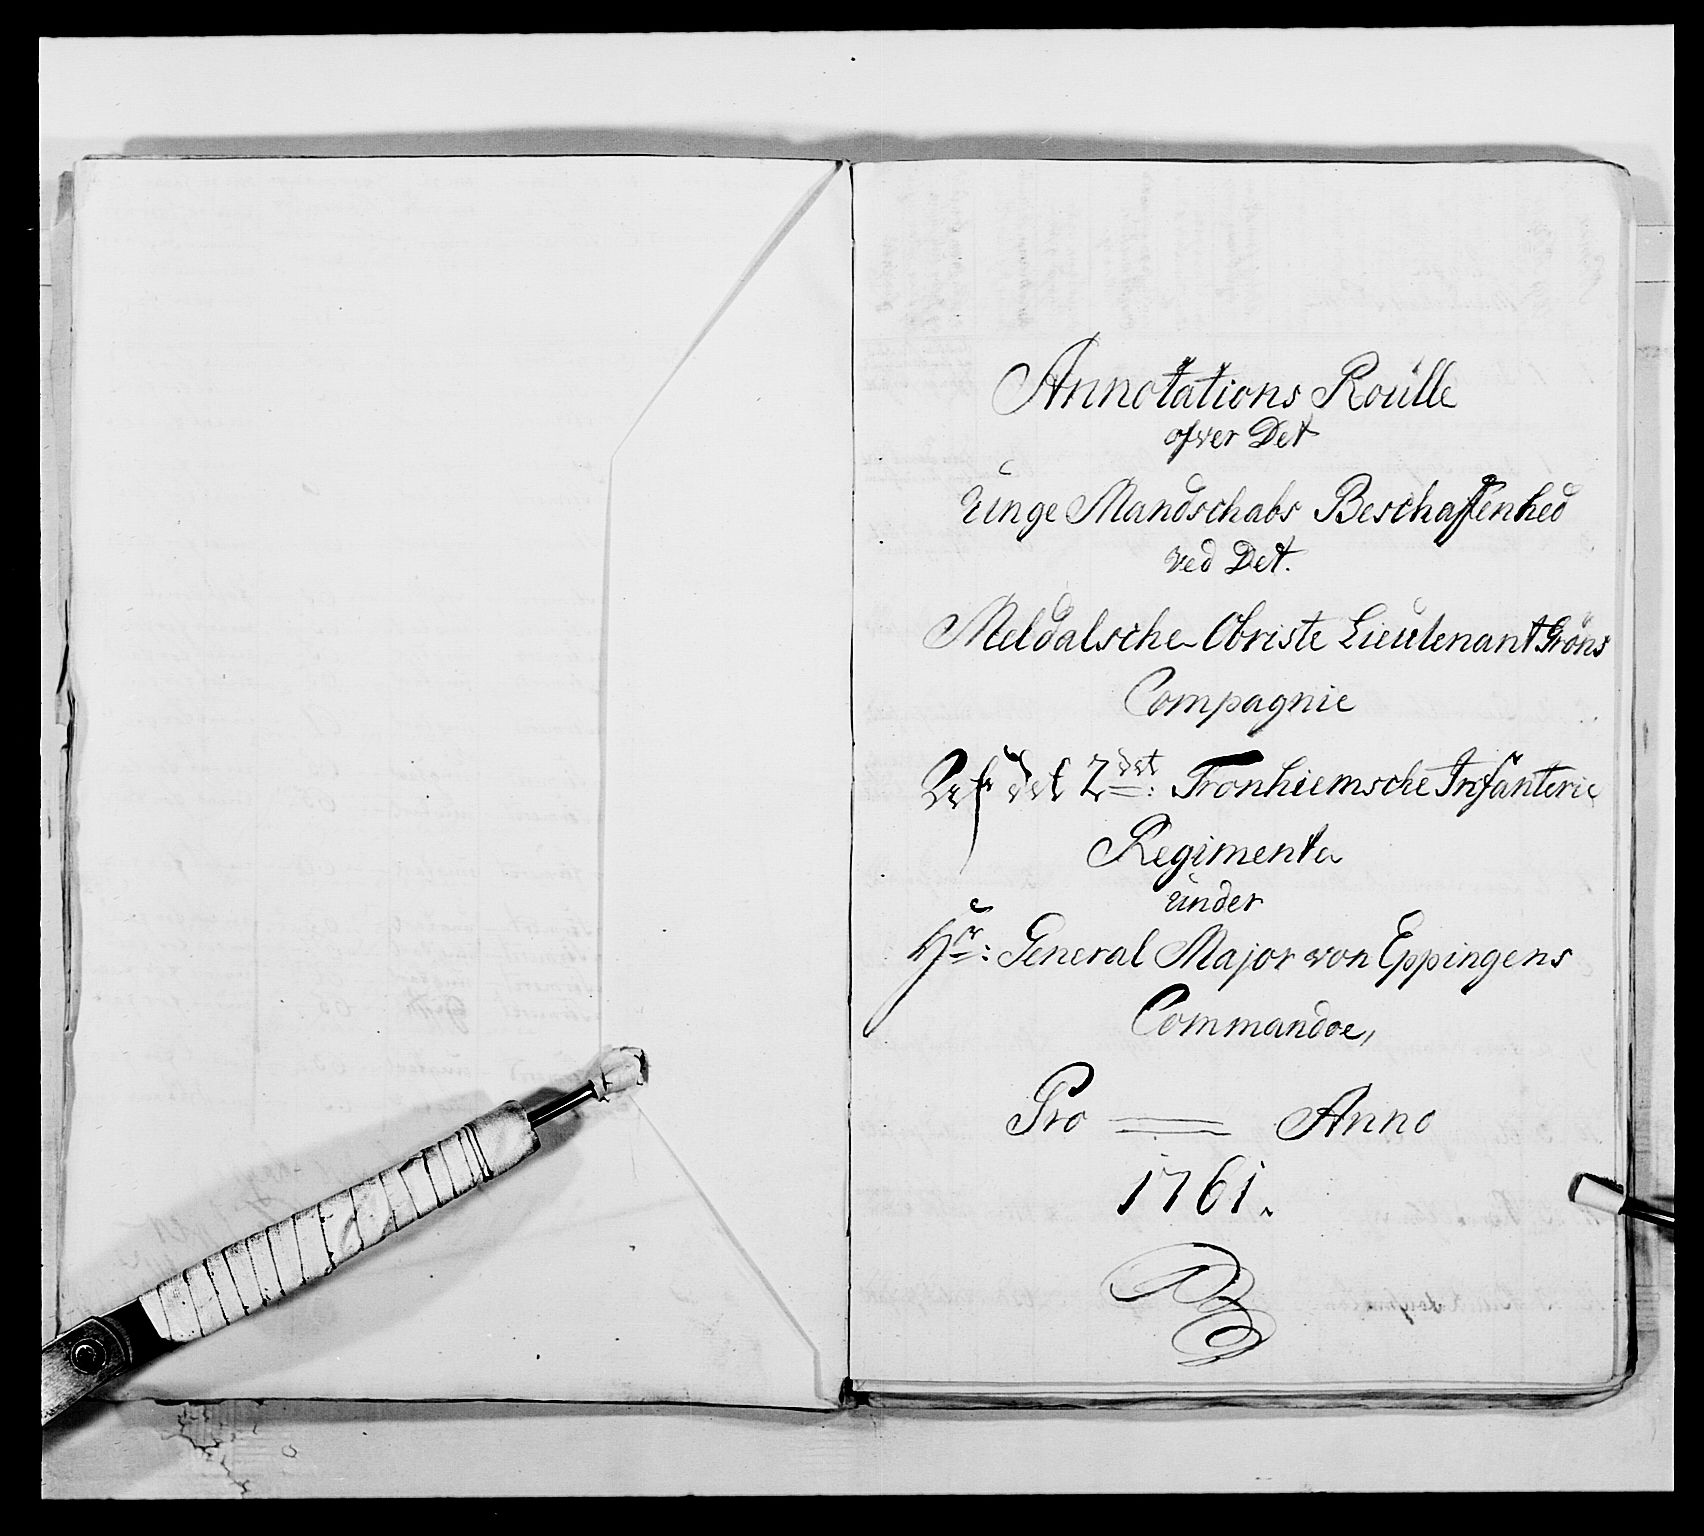 Annotations Roülle
ofver Det
Unge Mandschabs Beschaffenhed
ved Det.
Meldalsche Obriste Lieütenant Gröns
Compagnie
Af det 2det: Tronhiemsche Infanterie
Regimenta
ünder
Hr: General Major von Eppingens
Commandoe,
Pro = Anno
1761.